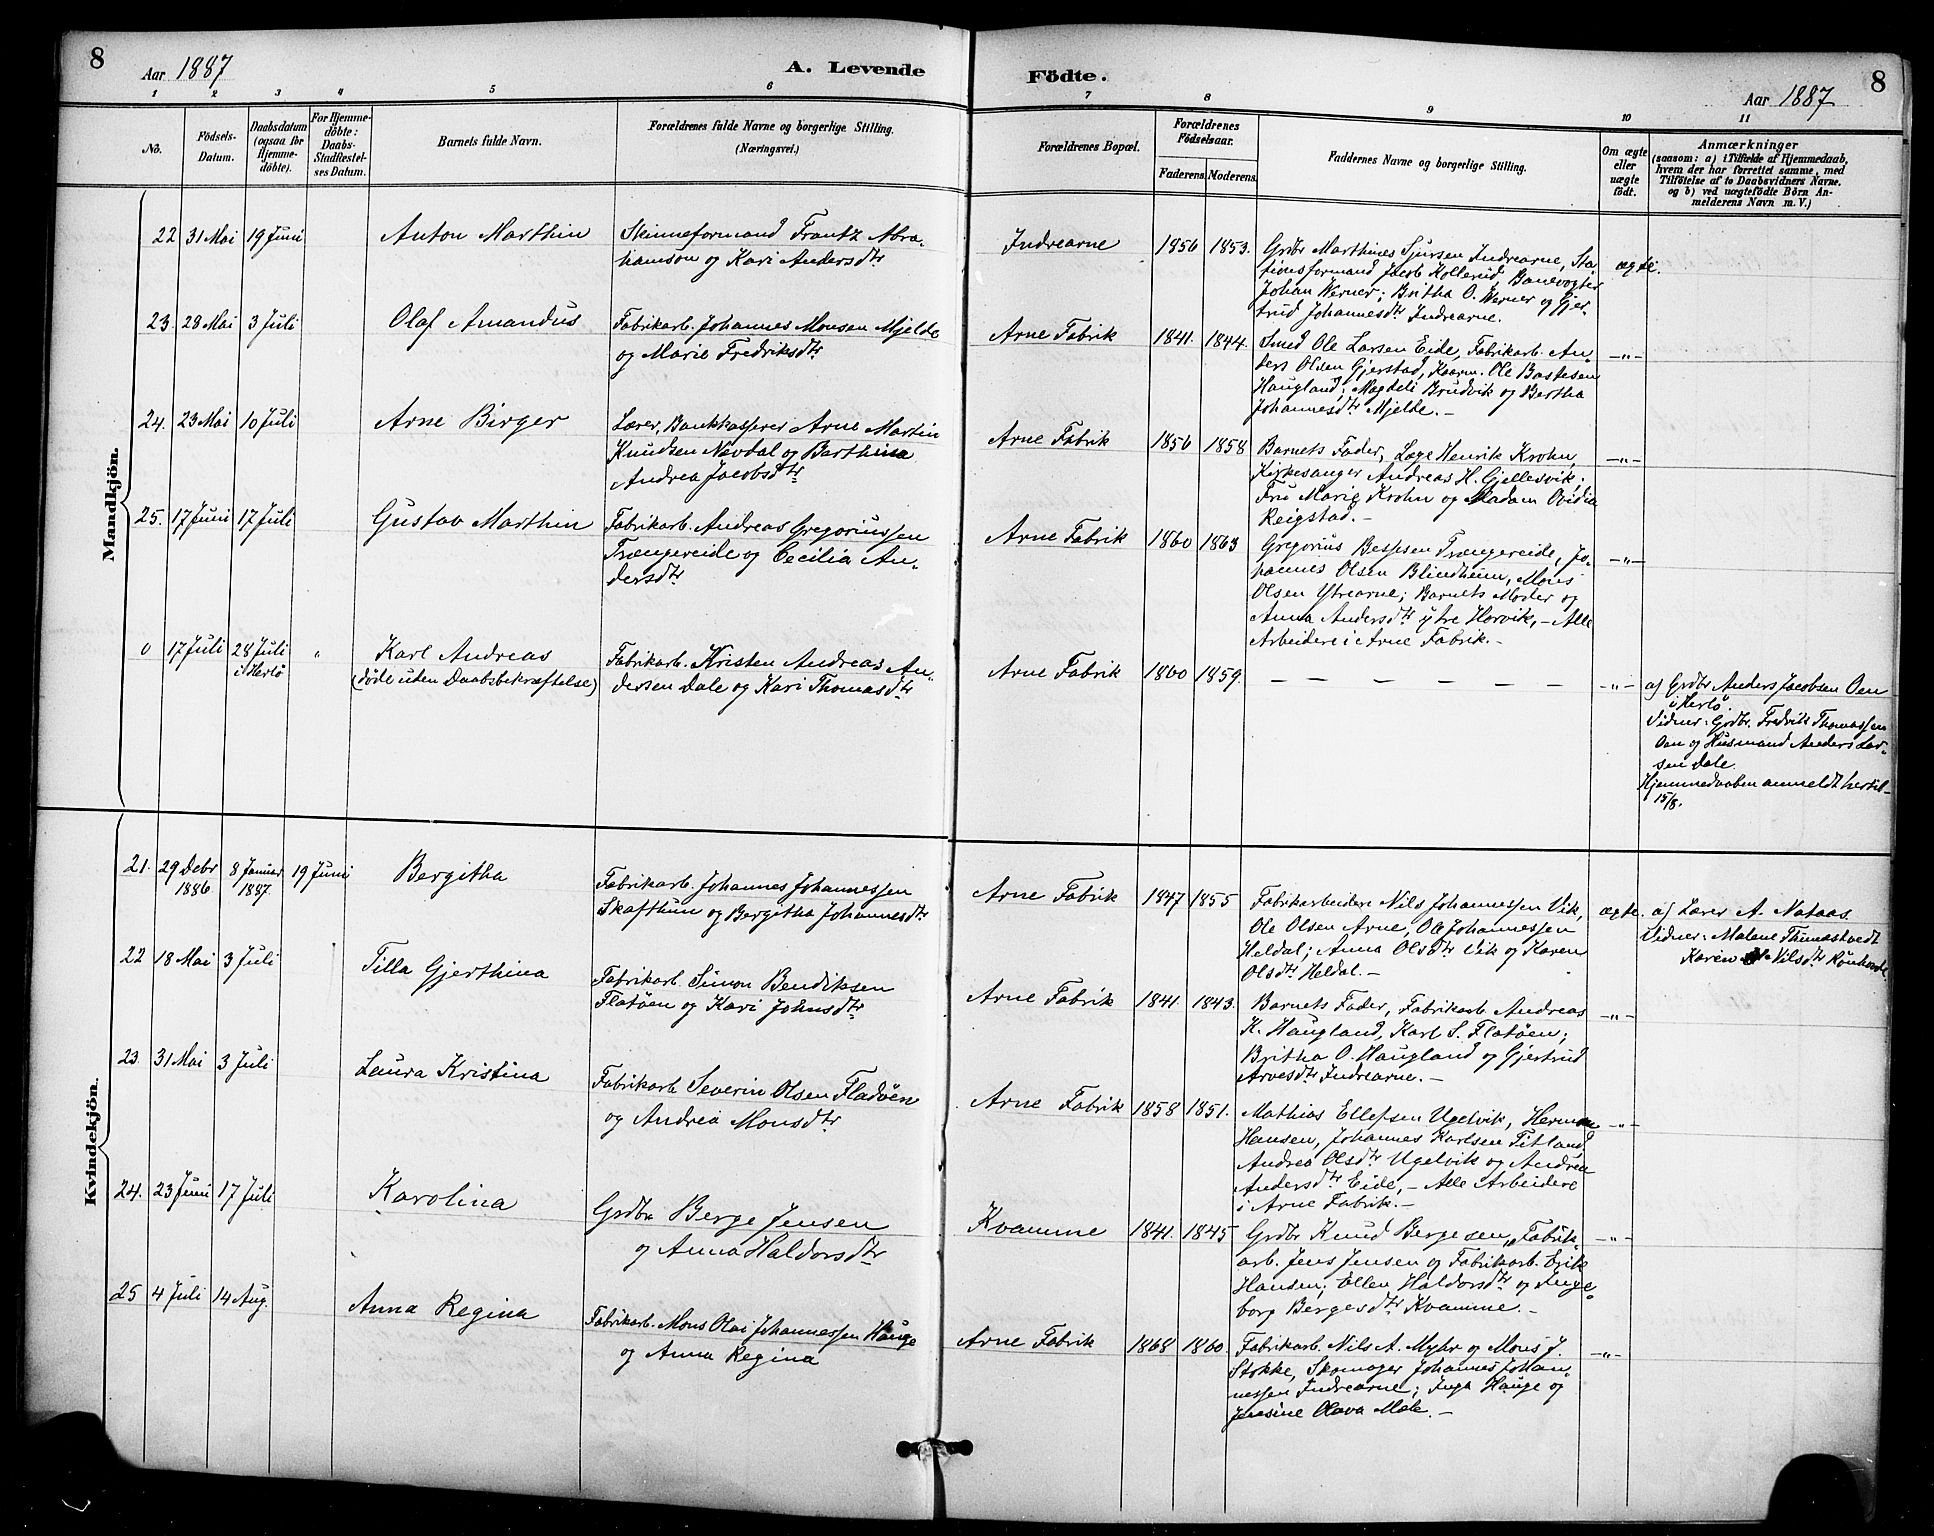 8
Aar 1887
A. Levende
Födte.
Aar 1887.
8
1 2 3 4 5 6 7 8 9 10 11
No.
Födsels-
Datum.
Daabsdatum
(ogsaa for
Hjemme-
döbte).
For Hjemme-
döbte:
Daabs-
Stadfæstel-
ses Datum.
Barnets fulde Navn.
Forældrenes fulde Navne og borgerlige Stilling.
(Næringsvei.)
Forældrenes Bopæl.
Forældrenes
Födselsaar.
Faderens.
Moderens.
Faddernes Navne og borgerlige Stilling.
Om ægte
eller
uægte
födt.
Anmærkninger
(saasom: a) i Tilfælde af Hjemmedaab,
hvem der har forrettet samme, med
Tilföielse af to Daabsvidners Navne.
og b) ved uægtefödte Börn An-
melderens Navn m. V.)
Mandkjön.
22 31 Mai 19 Juni
Anton Marthin
Skinneformand Frantz Abra-
hamson og Kari Andersdtr
Indrearne
1856 1853.
Grdbr Marthines Sjursen Indrearne, Sta-
tionsformand Jacob Kollerud Banevogter
Johan Werner; Britha O. Werner og Gjer-
trud Johannesdtr Indrearne.
ægte.
23. 28 Mai 3 Juli
Olaf Amandus
Fabrikarb. Johannes Monsen Mjelde
og Marie Fredriksdtr
Arne Fabrik
1841. 1844.
Smed Ole Larsen Eide, Fabrikarb. An-
ders Olsen Gjerstad, Kaarm. Ole Bastesen
Haugland; Magdeli Brudvik og Bertha
Johannesdtr Mjelde.-
-"-
24. 23 Mai 10 Juli
Arne Birger
Lærer, Bankkasserer Arne Martin
Knudsen Navdal og Barthina
Andrea Jacobsdtr
Arne Fabrik
1856 1858
Barnets Fader, Læge Henrik Krohn,
Kirkesanger Andreas H. Gjellesvik;
Fru Marie Krohn og Madam Ovidia
Reigstad.-
-"-
25. 17 Juni 17 Juli
Gustav Marthin
Fabrikarb. Andreas Gregoriussen
Trængereide og Cecilia An-
dersdtr
Arne Fabrik
1860 1863
Gregorius Bessesen Trængereide, Jo-
hannes Olsen Blindheim, Mons
Olsen Ytrearne; Barnets Moder og
Anna Andersdtr ytre Horvik, - Alle
Arbeidere i Arne Fabrik.-
-"-
0 17 Juli 28 Juli "
i Herlö
Karl Andreas
(döde uden Daabsbekræftelse)
Fabrikarb. Kristen Andreas An-
dersen Dale og Kari Thomasdtr
Arne Fabrik
1860 1859.
- - - - - - -
-"-
a) Grdbr Anders Jacobsen Oen
i Herlö.
Vidner: Grdbr. Fredrik Thomassen
Oen og Husmand Anders Lar-
sen Dale.
Hjemmedaaben anmeldt hertil-
15/8.
Kvindekjön.
21. 29 Debr 8 Januar 19 Juni
1886 1887.
Bergitha
Fabrikarb. Johannes Johannessen
Skafthun og Bergitha Johannesdtr
Arne Fabrik
1847 1855
Fabrikarbeidere Nils Johannessen Vik,
Ole Olsen Arne, Ole Johannessen
Heldal; Anna Olsdtr Vik og Karen
Olsdtr Heldal.-
ægte.
a) Lærer A. Nataas.
Vidner: Malene Thomastvedt
Karen Nilsdtr
22 18 Mai 3 Juli
Tilla Gjerthina
Fabrikarb. Simon Bendiksen
Flatöen og Kari Johnsdtr
Arne Fabrik
1841. 1843.
Barnets Fader, Fabrikarb Andreas
K. Haugland, Karl S. Flatöen;
Britha O. Haugland og Gjertrud
Arvesdtr Indrearne.-
-"-
23 31 Mai 3 Juli
Laura Kristina
Fabrikarb Severin Olsen Fladöen
og Andrea Monsdtr
Arne Fabrik
1858 1851.
Mathias Ellefsen Ugelvik, Herman
Hansen, Johannes Karlsen Titland
Andrea Olsdtr Ugelvik og Andrea
Andersdtr Eide, - Alle Arbeidere
i Arne Fabrik.-
-"-
24. 23 Juni 17 Juli
Karolina
Grdbr Berge Jensen
og Anna Haldorsdtr
Kvamme
1841. 1845
Grdbr Knud Bergesen, Fabrik-
arb. Jens Jensen og Fabrikarb. Erik
Hansen; Ellen Haldorsdtr og Inge-
borg Bergesdtr Kvamme.-
-"-
25 4 Juli 14 Aug.
Anna Regina
Fabrikarb. Mons Olai Johannessen Hauge
og Anna Regina
Arne Fabrik
1868 1860.
Fabrikarb. Nils A. Myhr og Mons J.
Stokke, Skomager Johannes Johan-
nessen Indrearne; Inga Hauge og
Jensine Olava Mæle.-
-"-